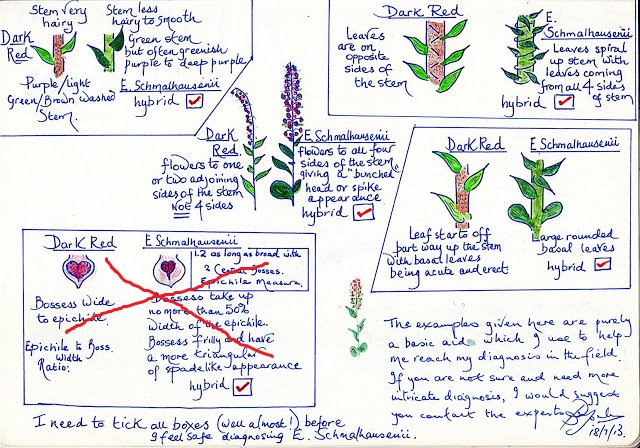 Stem very
hairy
Dark
Red
Purple/light
Green/Brown washed
Stem.
Stem less
hairy to smooth
Green stem
but often greenish
purple to deep purple
E. Schmalhausenii
hybrid
Dark Red
Leaves
are on
opposite
sides of
the stem
E.
Schmalhausenii
Leaves spiral
up stem with
leaves coming
from all 4 sides
of stem
hybrid
Dark
Red.
flowers to one
or two adjoining
sides of the stem
NOT 4 sides
E. Schmalhausenii
flowers to all four
sides of the stem,
giving a "bunched"
head or spike
appearance
hybrid
Dark Red
Leaf starts off
part way up the stem
with basal leaves
being acute and erect
E Schmalhausenii
Large rounded
basal leaves
hybrid
Dark Red
Bossess Wide
to epichile.
Epichile to Boss.
Width
Ratio.
E Schmalhausenii
1.2 as long as broad with
2 Central Bosses.
Epichile Measure.
Bossess take up
no more than 50%
width of the epichile.
Bossess frilly and have
a more triangular
of spadelike appearance
hybrid
The examples given here are purely
a basic aid which I use to help
me reach my diagnosis in the field.
If you are not sure and need more
intricate diagnosis, I would suggest
you contact the experts
18/7/13.
I need to tick all boxes (well almost!) before
I feel safe diagnosing E. Schmalhausenii.